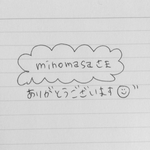 minomasaさま
ありがとうございます